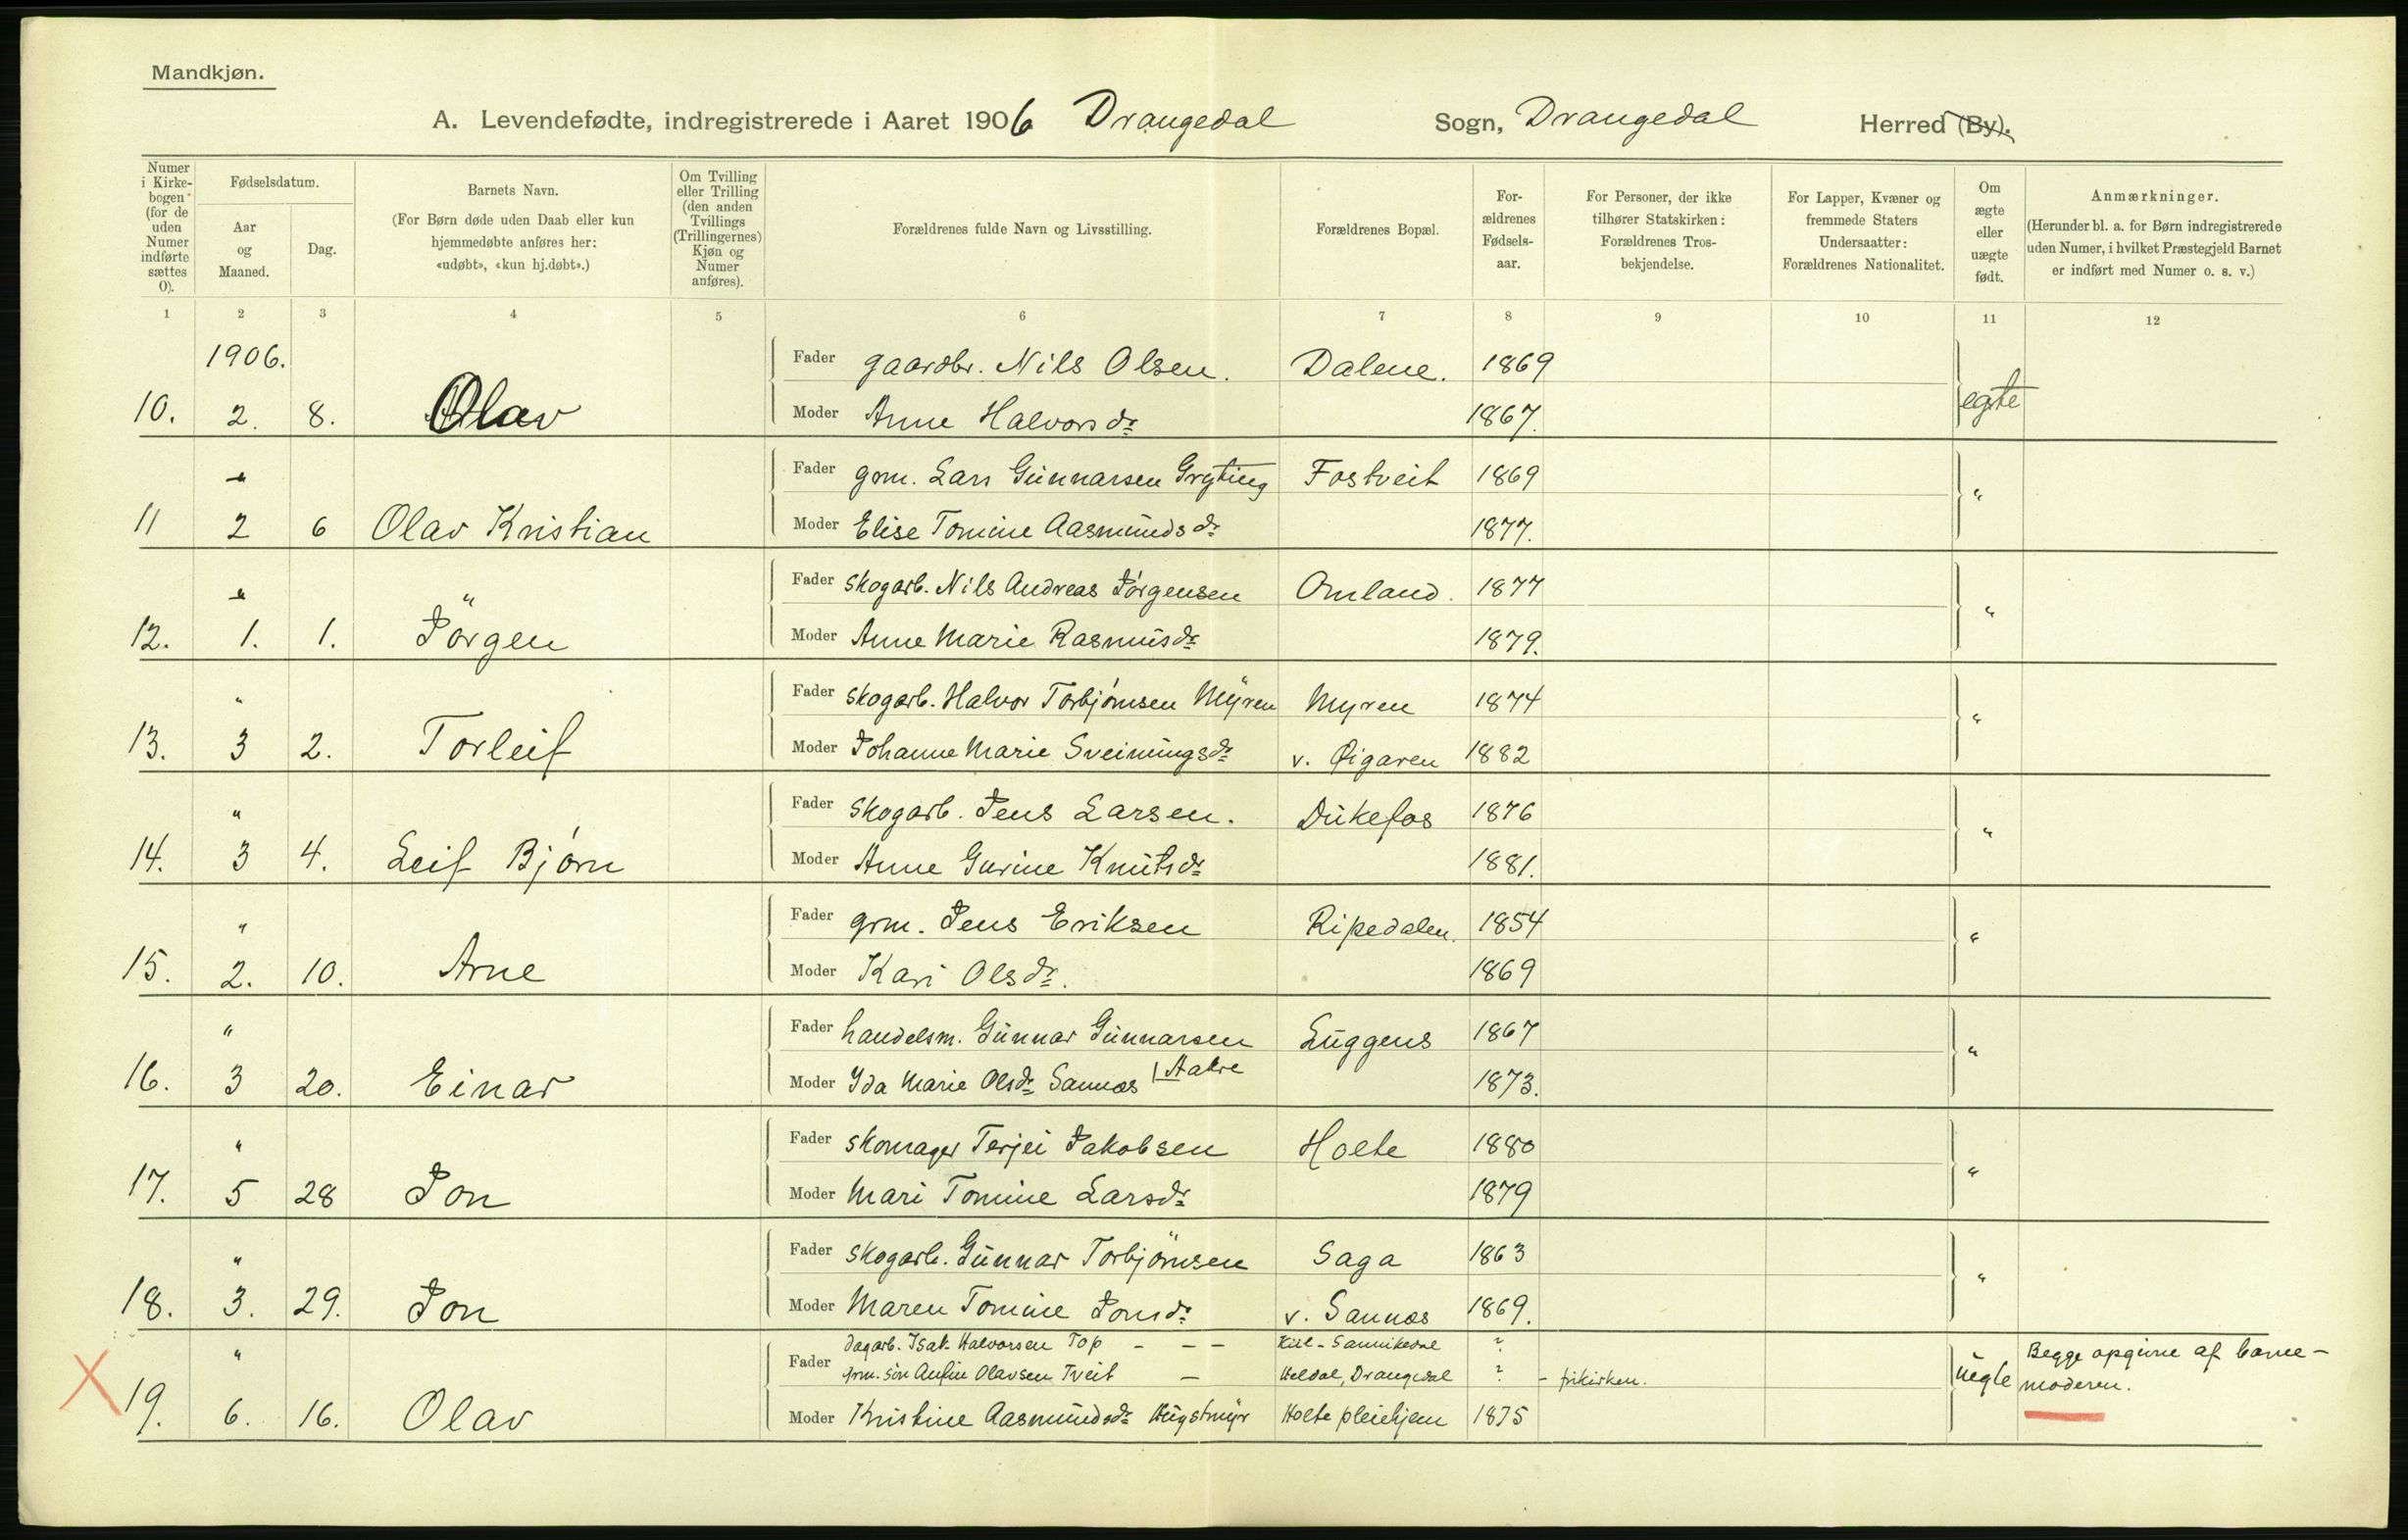 Mandkjøn.
A. Levendefødte, indregistrerede i Aaret 1906 Drangedal Sogn, Drangedal Herred (By).
Numer i Kirke-bogen (for de uden Numer indførte sættes 0).
Fødselsdatum.
Aar og Maaned.
Dag.
Barnets Navn.
(For Børn døde uden Daab eller kun hjemmedøbte anføres her: «udøbt», «kun hj.døbt».)
Om Tvilling eller Trilling (den anden Tvillings (Trillingernes) Kjøn og Numer anføres).
Forældrenes fulde Navn og Livsstilling.
Forældrenes Bopæl.
For-ældrenes Fødsels-aar.
For Personer, der ikke tilhører Statskirken: Forældrenes Tros-bekjendelse.
For Lapper, Kvæner og fremmede Staters Undersaatter: Forældrenes Nationalitet.
Om ægte eller uægte født.
Anmærkninger.
(Herunder bl. a. for Børn indregistrerede uden Numer, i hvilket Præstegjeld Barnet er indført med Numer o. s. v.)
1 2 3 4 5 6 7 8 9 10 11 12
1906. Fader gaardbr. Nils Olsen. Dalene. 1869
10. 2. 8. Olav Moder Anne Halvorsdr 1867. egte
" Fader grm. Lars Gunnarsen Gryting Fostveit 1869
11 2 6 Olav Kristian Moder Elise Tomine Aasmundsdr 1877. "
" Fader skogarb. Nils Andreas Jörgensen Omland. 1877
12. 1. 1. Jörgen Moder Anne Marie Rasmusdr 1879. "
" Fader skogarb. Halvor Torbjørnsen Myren Myren 1874
13. 3 2. Torleif Moder Johanne Marie Sveinungsdr v. Øigaren 1882 "
" Fader skogarb. Jens Larsen. Dukefos 1876
14. 3 4. Leif Bjórn Moder Anne Gurine Knutsdr 1881. "
" Fader grm. Jens Eriksen Ripedalen. 1854
15. 2. 10. Arne Moder Kari Olsdr. 1869 "
" Fader handelsm. Gunnar Gunnarsen Luggens 1867
Aakre
16. 3 20. Einar Moder Ida Marie Olsdr Sannæs 1873. "
" Fader skomager Terjei Jakobsen Holte 1880
17. 5 28 Jon Moder Mari Tomine Larsdr 1879 "
" Fader skogarb. Gunnar Torbjörnsen Saga 1863
18. 3. 29. Jon Moder Maren Tomine Jonsdr v. Sannæs 1869. "
dagarb. Isak Halvorsen Top - - - Kiil - Sannikedal ?
" Fader grm. søn Anfin Olavsen Tveit - Heldal, Drangedal ? - frikirken.
X 19. 6. 16. Olav Moder Kristine Aasmundsdr Holte pleiehjem 1875 uegte
Begge opgivne af barne-
moderen.